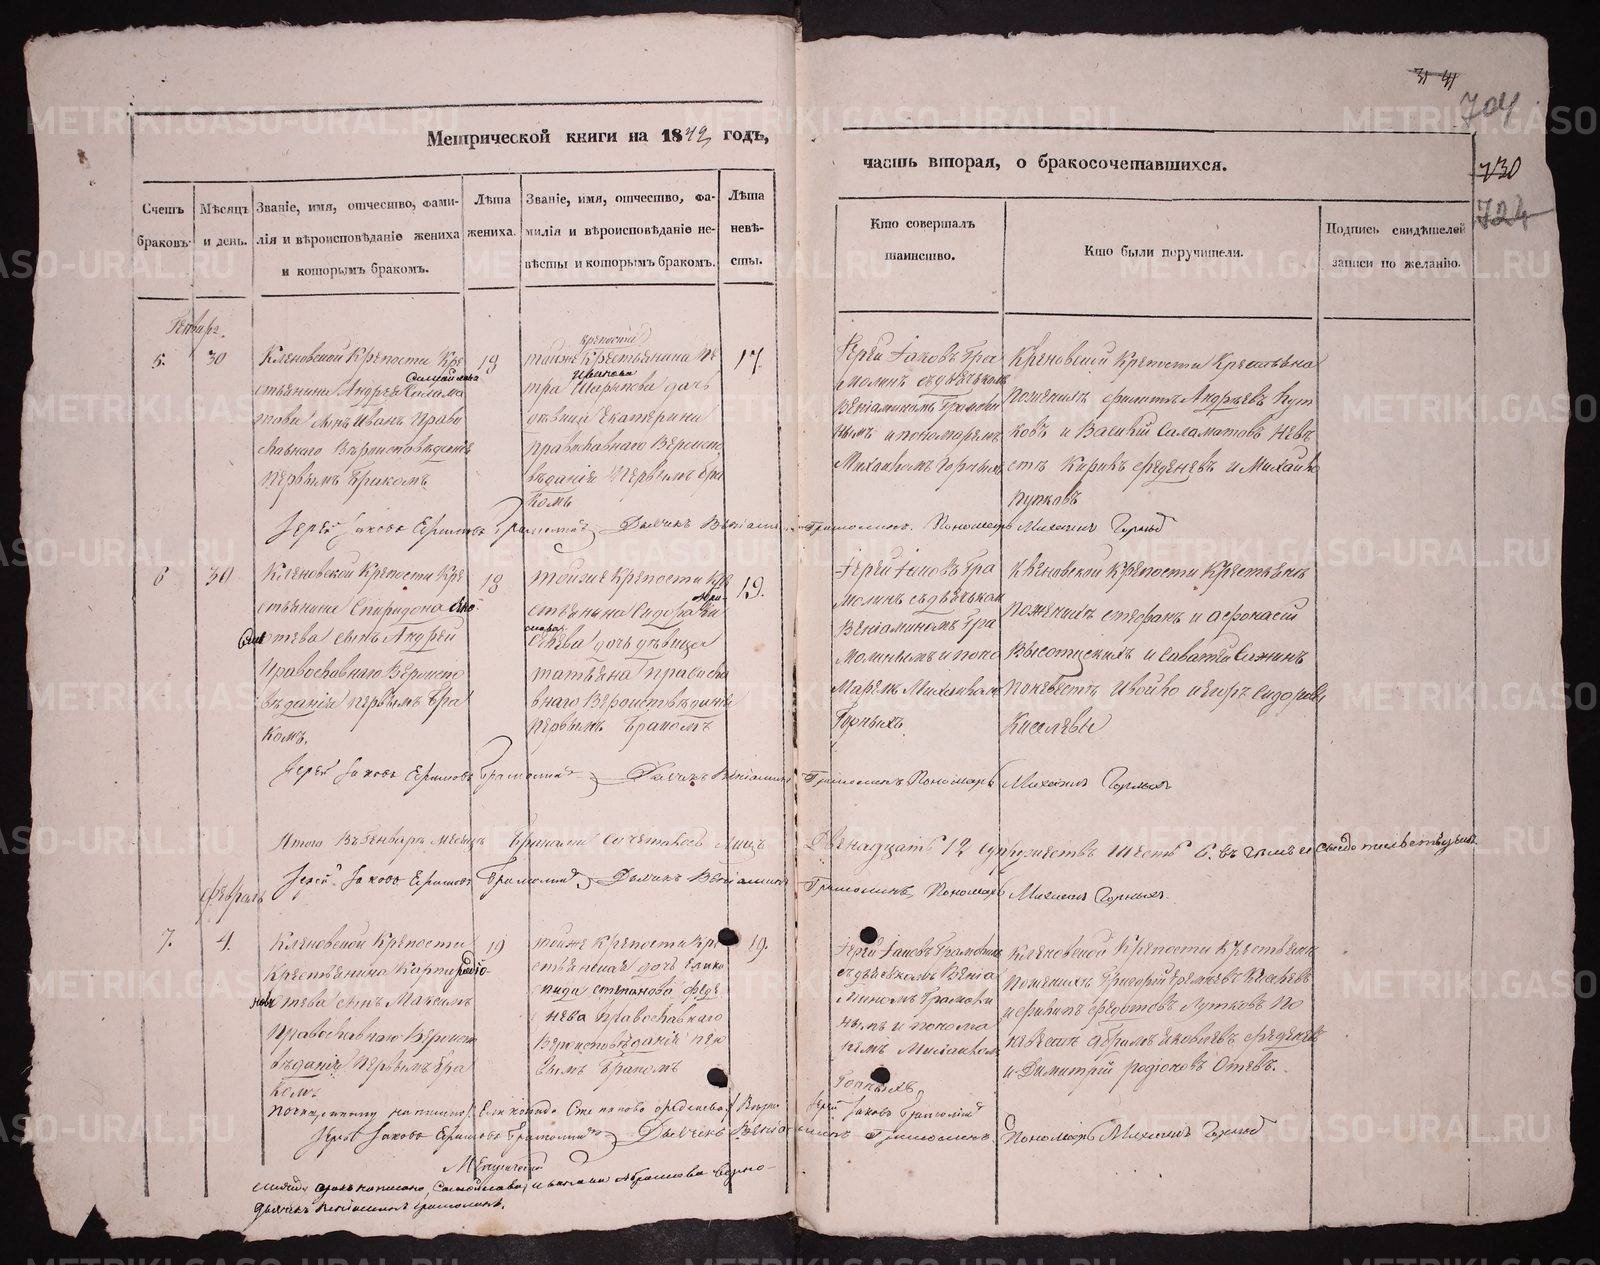 31 41
704
730
724
Метрической книги на 1842 годъ,
часть вторая, о бракосочетавшихся.
Счетъ браковъ.
Мѣсяцъ и день.
Званіе, имя, отчество, фами-
лія и вѣроисповѣданіе жениха
и которымъ бракомъ.
Лѣта
жениха.
Званіе, имя, отчество, фа-
милія и вѣроисповѣданіе не-
вѣсты и которымъ бракомъ.
Лѣта
невѣ-
сты.
Кто совершалъ
таинство.
Кто были поручители.
Подпись свидѣтелей
записи по желанію.
Генварь
5.
30
Кленовской Крепости Кре
стьянина Андрея
сынъ Иванъ Право
славнаго Вѣроисповѣданія
первымъ бракомъ
19
тойже Крестьянина Пе
крепости
тра Шарыпова дочь
Иванова
девица Екатерина
православнаго Вероиспо
веданія первымъ бра
комъ
17.
Іерей Іаковъ Гра
молинъ съ дьячькомъ
Веніаминомъ Грамоли
нымъ и пономаремъ
Михаиломъ Горныхъ
Кленовской Крепости Крестьяна
поженихѣ Филиппъ Андреевъ Пут
ковъ и Василій Саламатовъ Невѣ
стѣ Кирикъ Феденевъ и Михайло
Путковъ
Іерей Іаковъ Ефимовъ Грамолинъ Дьячекъ Веніаминъ Грамолинъ. Пономарь Михаилъ Горныхъ
6
30
Кленовской Крепости Кре
стьянина Спиридона
сынъ Андрей
Православнаго Вероиспо
веданія первымъ бра
комъ.
18
тойже Крепости Кре
стьянина Сидора Ки
селева дочь девица
татьяна православ
наго Вероисповеданія
первымъ бракомъ
19.
Іерей Іаковъ Гра
молинъ съ дьячькомъ
Веніаминомъ Гра
молинымъ и поно
маремъ Михаиломъ
Горныхъ.
Кленовской Крепости Крестьяне
поженихѣ Стефанъ и Афонасій
Высотинскихъ и Саватей
поневестѣ Ивойло и Егоръ Сидоровы
Киселевы
Іерей Іаковъ Ефимовъ Грамолинъ Дьячекъ Веніаминъ Грамолинъ Пономарь Михаилъ Горныхъ
Итого Въ Генварѣ месяцѣ бракомъ сочеталось лицъ Двенадцать 12 супружествъ шесть 6. въ чемъ и свидетельствуемъ.
Іерей Іаковъ Ефимовъ Грамолинъ Дьячекъ Веніаминъ Грамолинъ, Пономарь Михаилъ Горныхъ.
Февраль
7.
4.
Кленовской Крепости
Крестьянина Карпа родіо-
нова сынъ Максимъ
Православнаго Вероиспо
веданія первымъ бра
комъ
19
тойже Крепости Кре
стьянская дочь Елико
нида степанова феде
нева Православнаго
Вероисповеданія пер
вымъ бракомъ
19.
Іерей Іаковъ Грамолинъ
съ дьячкомъ Веніа
миномъ Грамоли
нымъ и понома
ремъ Михаиломъ
Горныхъ
Кленовской Крепости Крестьяне
поженихѣ Григорій Еремеевъ
и Филипъ Федотовъ Путковъ По
невестѣ Абрамъ Яковлевъ Феденевъ
и Димитрій родіоновъ Отевъ.
Іерей Іаковъ Грамолинъ
Іерей Іаковъ Ефимовъ Грамолинъ Дьячекъ Веніаминъ Грамолинъ. Пономарь Михаилъ Горныхъ
Дьячекъ Веніаминъ Грамолинъ.
METRIKI.GASO-URAL.RU